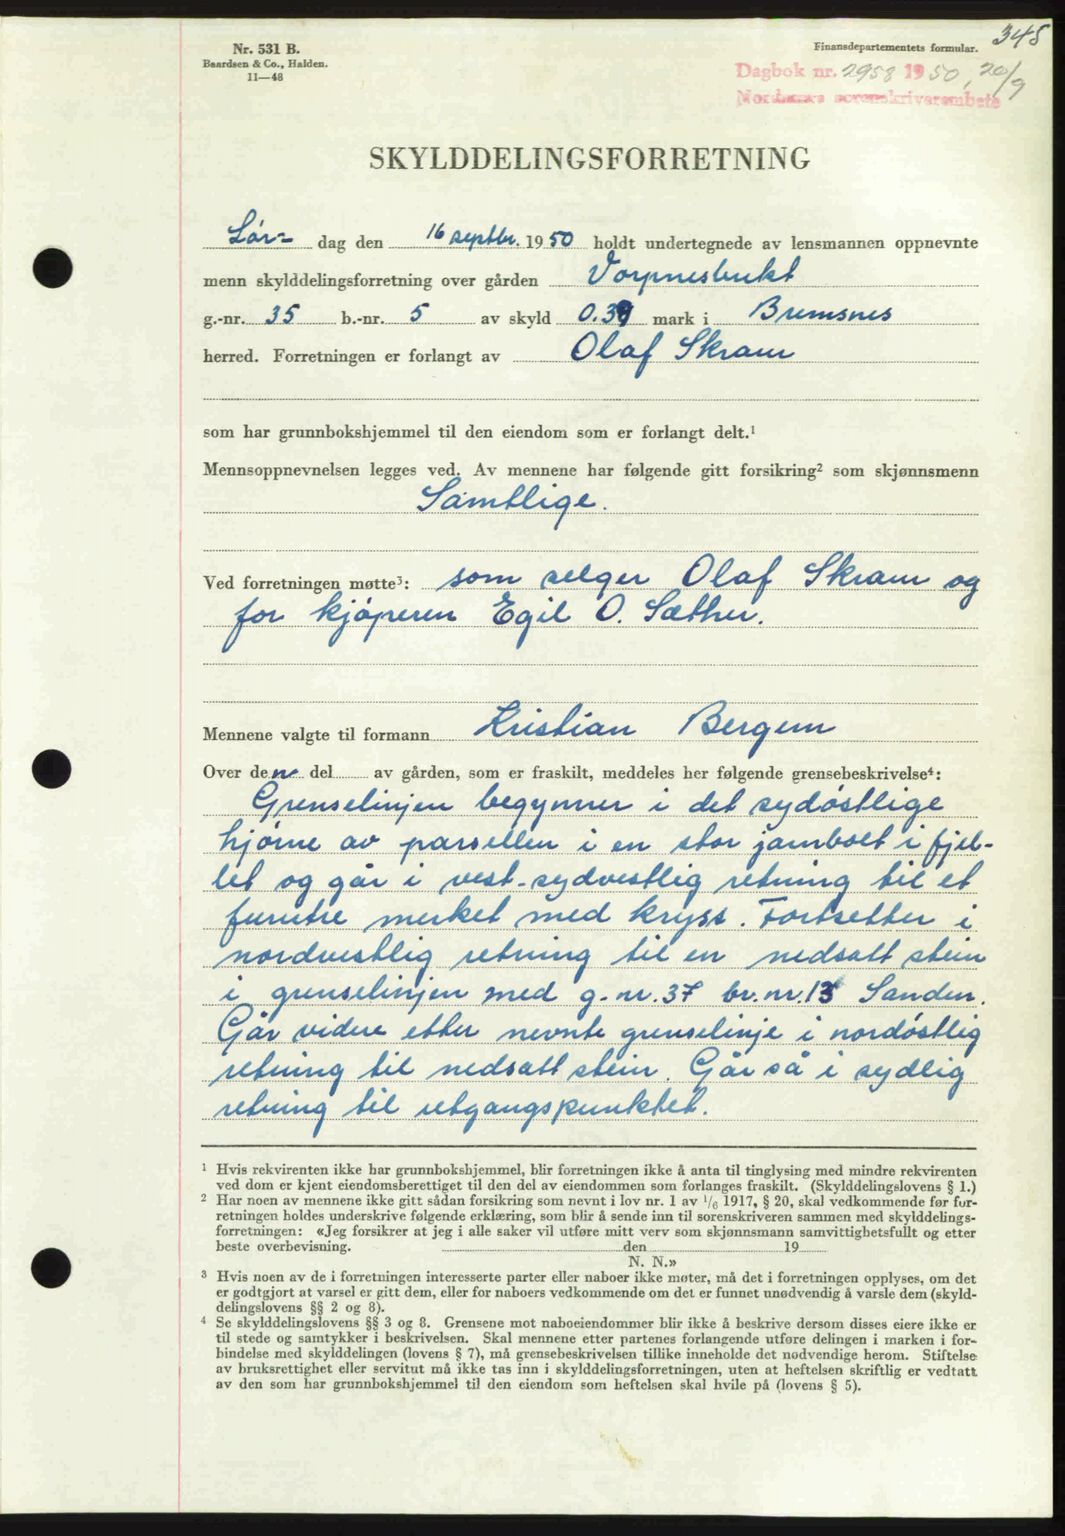 345
Nr. 531 B.
Baardsen & Co., Halden.
11—48
Finansdepartementets formular.
Dagbok nr. 2958 1950, 20/9
Nordmøre sorenskriverembete
SKYLDDELINGSFORRETNING
Lør- dag den 16 septbr. 1950 holdt undertegnede av lensmannen oppnevnte
menn skylddelingsforretning over gården Vorpnesbukt
g.-nr. 35 b.-nr. 5 av skyld 0.39 mark i Bremsnes
herred. Forretningen er forlangt av Olaf Skram
som har grunnbokshjemmel til den eiendom som er forlangt delt.¹
Mennsoppnevnelsen legges ved. Av mennene har følgende gitt forsikring² som skjønnsmenn
Samtlige.
Ved forretningen møtte³: som selger Olaf Skram og
for kjøperen Egil O. Sæther.
Mennene valgte til formann Kristian Bergem
Over denne del av gården, som er fraskilt, meddeles her følgende grensebeskrivelse⁴:
Grenselinjen begynner i det sydøstlige
hjørne av parsellen i en stor jarnbolt i fjel-
let og går i vest-sydvestlig retning til et
furutre merket med kryss. Fortsetter i
nordvestlig retning til en nedsatt stein
i grenselinjen med g.nr. 37 br.nr. 13 Sanden.
Går videre etter nevnte grenselinje i nordøstlig
retning til nedsatt stein. Går så i sydlig
retning til utgangspunktet.
¹ Hvis rekvirenten ikke har grunnbokshjemmel, blir forretningen ikke å anta til tinglysing med mindre rekvirenten
ved dom er kjent eiendomsberettiget til den del av eiendommen som forlanges fraskilt. (Skylddelingslovens § 1.)
² Har noen av mennene ikke gitt sådan forsikring som nevnt i lov nr. 1 av ¹/₆ 1917, § 20, skal vedkommende før for-
retningen holdes underskrive følgende erklæring, som blir å sende inn til sorenskriveren sammen med skylddelings-
forretningen: «Jeg forsikrer at jeg i alle saker vil utføre mitt verv som skjønnsmann samvittighetsfullt og etter
beste overbevisning. den 19
N. N.»
³ Hvis noen av de i forretningen interesserte parter eller naboer ikke møter, må det i forretningen opplyses, om det
er godtgjort at varsel er gitt dem, eller for naboers vedkommende om det er funnet unødvendig å varsle dem (skyld-
delingslovens §§ 2 og 8).
⁴ Se skylddelingslovens §§ 3 og 8. Grensene mot naboeiendommer blir ikke å beskrive dersom disses eiere ikke er
til stede og samtykker i beskrivelsen. Skal mennene etter partenes forlangende utføre delingen i marken i for-
bindelse med skylddelingen (lovens § 7), må grensebeskrivelsen tillike inneholde det nødvendige herom. Stiftelse
av bruksrettighet eller servitut må ikke tas inn i skylddelingsforretningen, uten at heftelsen skriftlig er vedtatt
av den som har grunnbokshjemmel til den eiendom som heftelsen skal hvile på (lovens § 5).